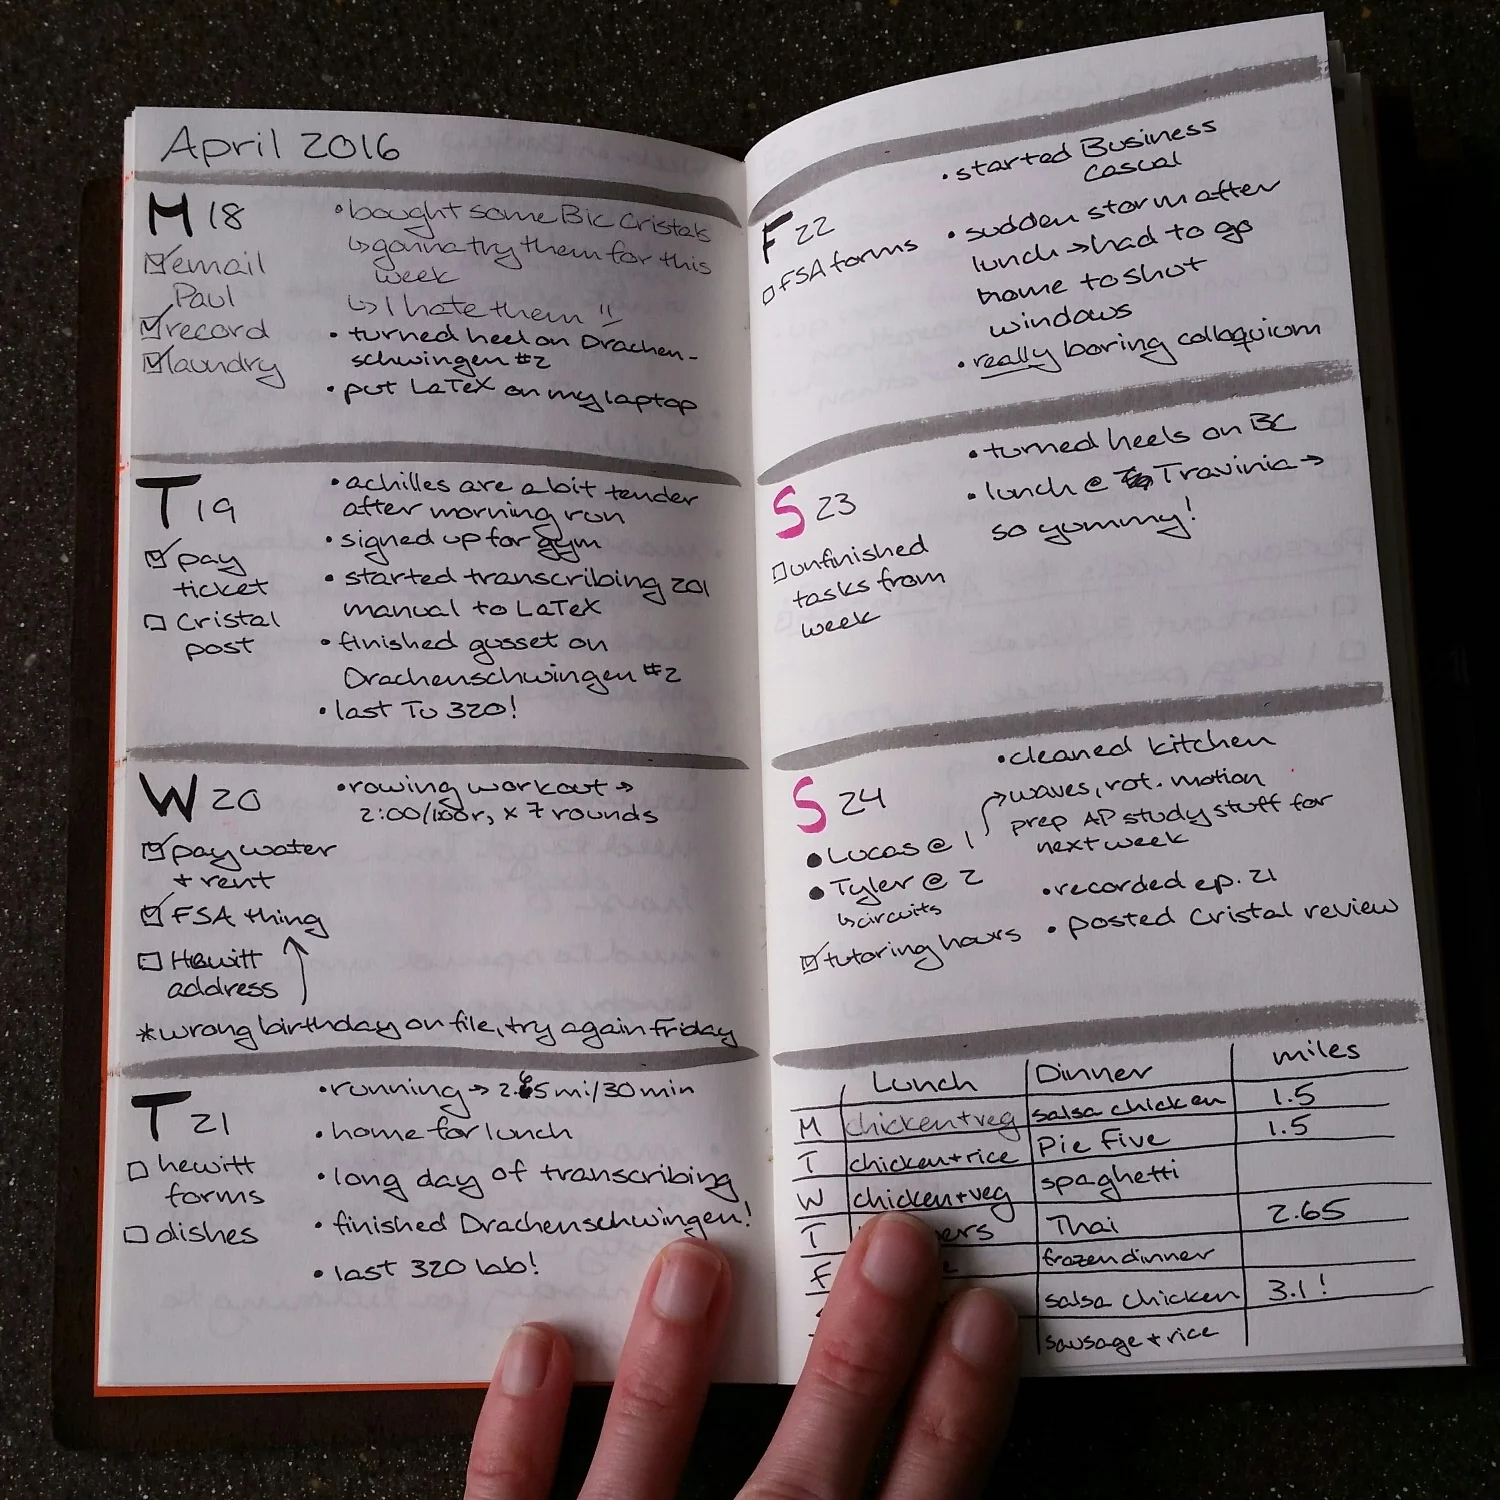 April 2016
M 18
☑ email
Paul
☑ record
☑ laundry
• bought some Bic Cristals
↳ gonna try them for this
week
↳ I hate them !!
• turned heel on Drachen-
schwingen #2
• put LaTeX on my laptop
T 19
☑ pay
ticket
☐ Cristal
post
• achilles are a bit tender
after morning run
• signed up for gym
• started transcribing 201
manual to LaTeX
• finished gusset on
Drachenschwingen #2
• last Tu 320!
W 20
☑ pay water
+ rent
☑ FSA thing
☐ Hewitt
address
• rowing workout →
2:00/100r, x 7 rounds
*wrong birthday on file, try again Friday
T 21
☐ hewitt
forms
☐ dishes
• running → 2.65 mi/30 min
• home for lunch
• long day of transcribing
• finished Drachenschwingen!
• last 320 lab!
F 22
☐ FSA forms
• started Business
Casual
• sudden storm after
lunch → had to go
home to shut
windows
• really boring colloquium
S 23
☐ unfinished
tasks from
week
• turned heels on BC
• lunch @ Travinia →
so yummy!
S 24
● Lucas @ 1
● Tyler @ 2
↳ circuits
☑ tutoring hours
• cleaned kitchen
→ waves, rot. motion
prep AP study stuff for
next week
• recorded ep. 21
• posted Cristal review
Lunch Dinner miles
M chicken+veg salsa chicken 1.5
T chicken+rice Pie Five 1.5
W chicken+veg spaghetti
T Thai 2.65
F frozen dinner
salsa chicken 3.1!
sausage + rice